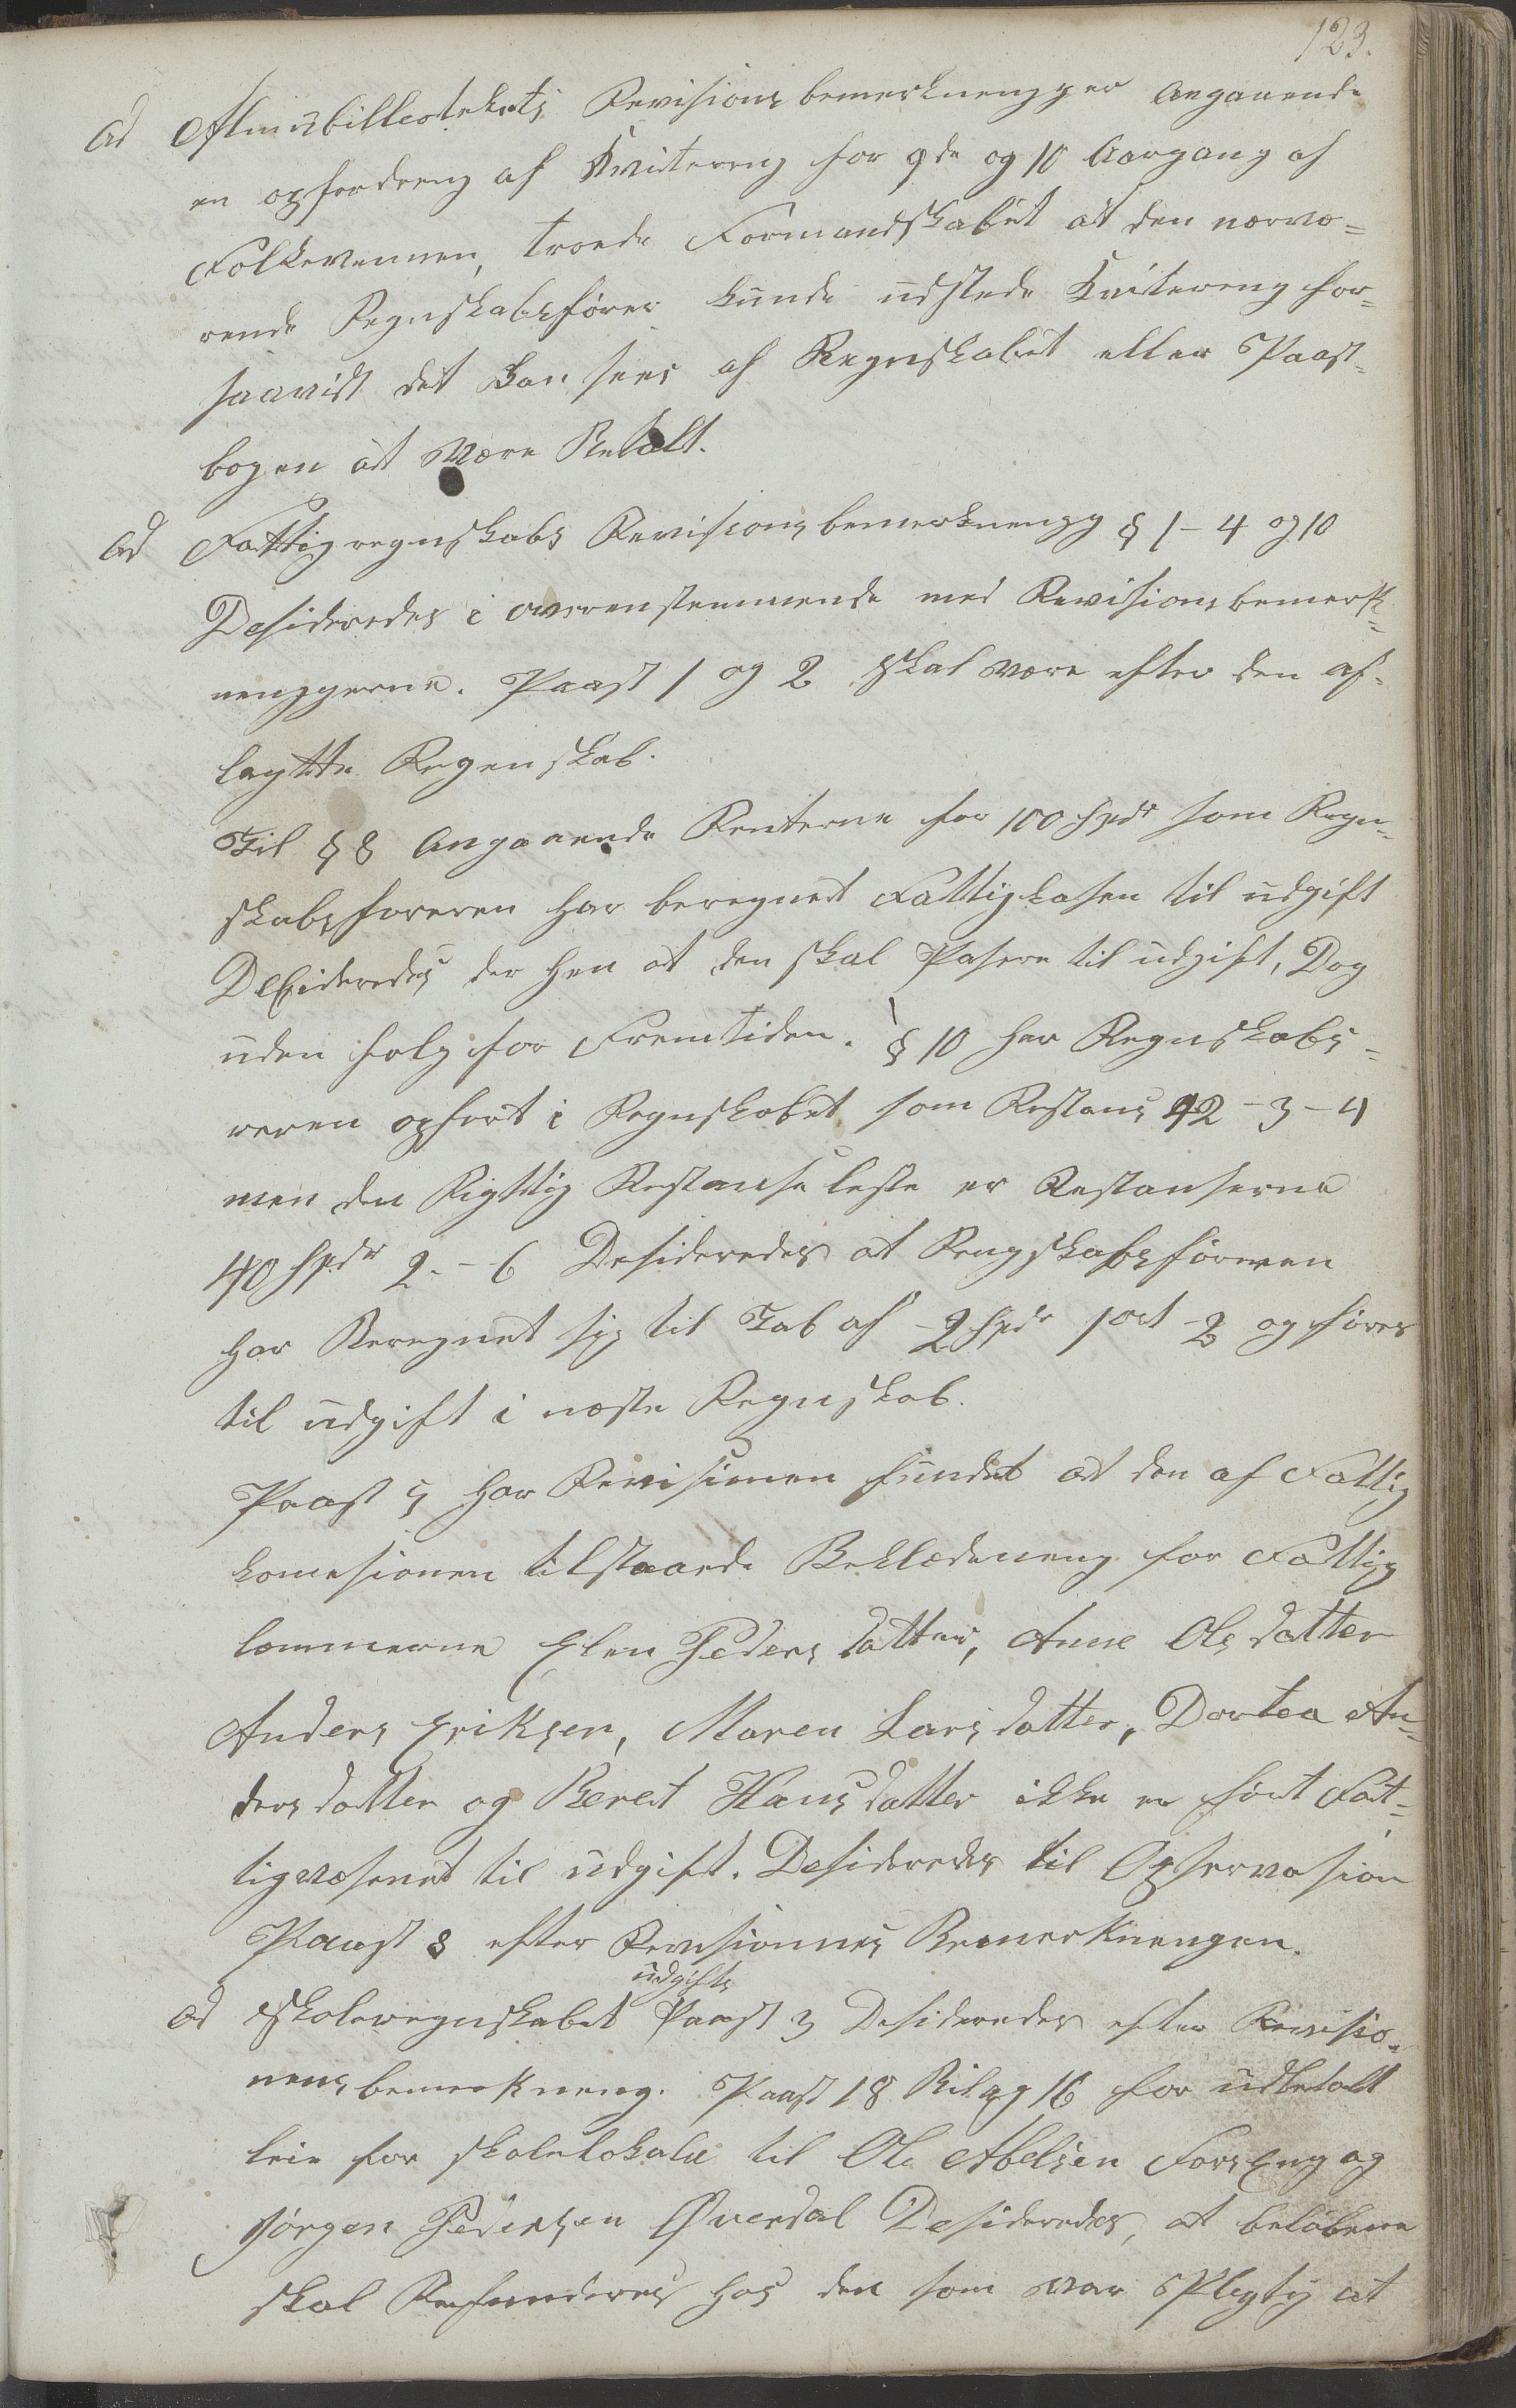 123.
Ad Almubilleotekets Revisions bemerknengger Angaaende
en opfordreng af Kvitereng for 9de og 10 Aargang af
Folkevennen, troede Formandskabet at den nærvæ=
rende Regnskabsfører kunde udstede Kvitereng for=
saavidt det kan sees af Regnskabet eller Paast=
bogen at være Betalt.
Ad Fattigregnskabs Revisionsbemerknengg § 1 - 4 og 10
Desideredes i overenstemmende med Revisionsbemerk=
nenggerne. Paast 1 og 2 skal være efter den af=
lagtte Regenskab.
Til § 8 Angaaende Renterne for 100 Spdr som Regn=
skabsføreren har beregnet Fattigkasen til udgift
Desideredes der hen at den skal Pasere til udgift, Dog
uden følg for Fremtiden. § 10 har Regnskabs=
reren opført i Regnskabet som Restans 42 - 3 - 4
men den Rigttig Restanse leste er Restanserne
40 Spdr 2. - 6 Desideredes at Rengskabsføreren
har Beregnet sig til Tab af - 2 Spdr 1 ort - 2 og føres
til udgift i næste Regnskab.
Paast 5 har Revisionen fundet at den af Fattig
komesionen tilstaaede Beklædeneng for Fattig
lemmerne Elen Peders datter, Anne Ols datter
Anders Eriksen, Maren Lars datter, Dortea An=
ders datter og Beret Hans datter ikke er ført Fat=
tigvæsenet til udgift. Desideredes til Opservasion
Paast 8 efter Revisionnes Bemerknengen.
udgifts
ad Skoleregnskabet Paast 3 Desideredes efter Revisio=
nens bemerkneng. Paast 18 Bilag 16 for udbetalt
leie for skolelokale til Ole Abelsen Forseng og
Jørgen Pedersen Øverdal Desideredes, at beløbene
skal Refunderes hos den som var Plegtig at